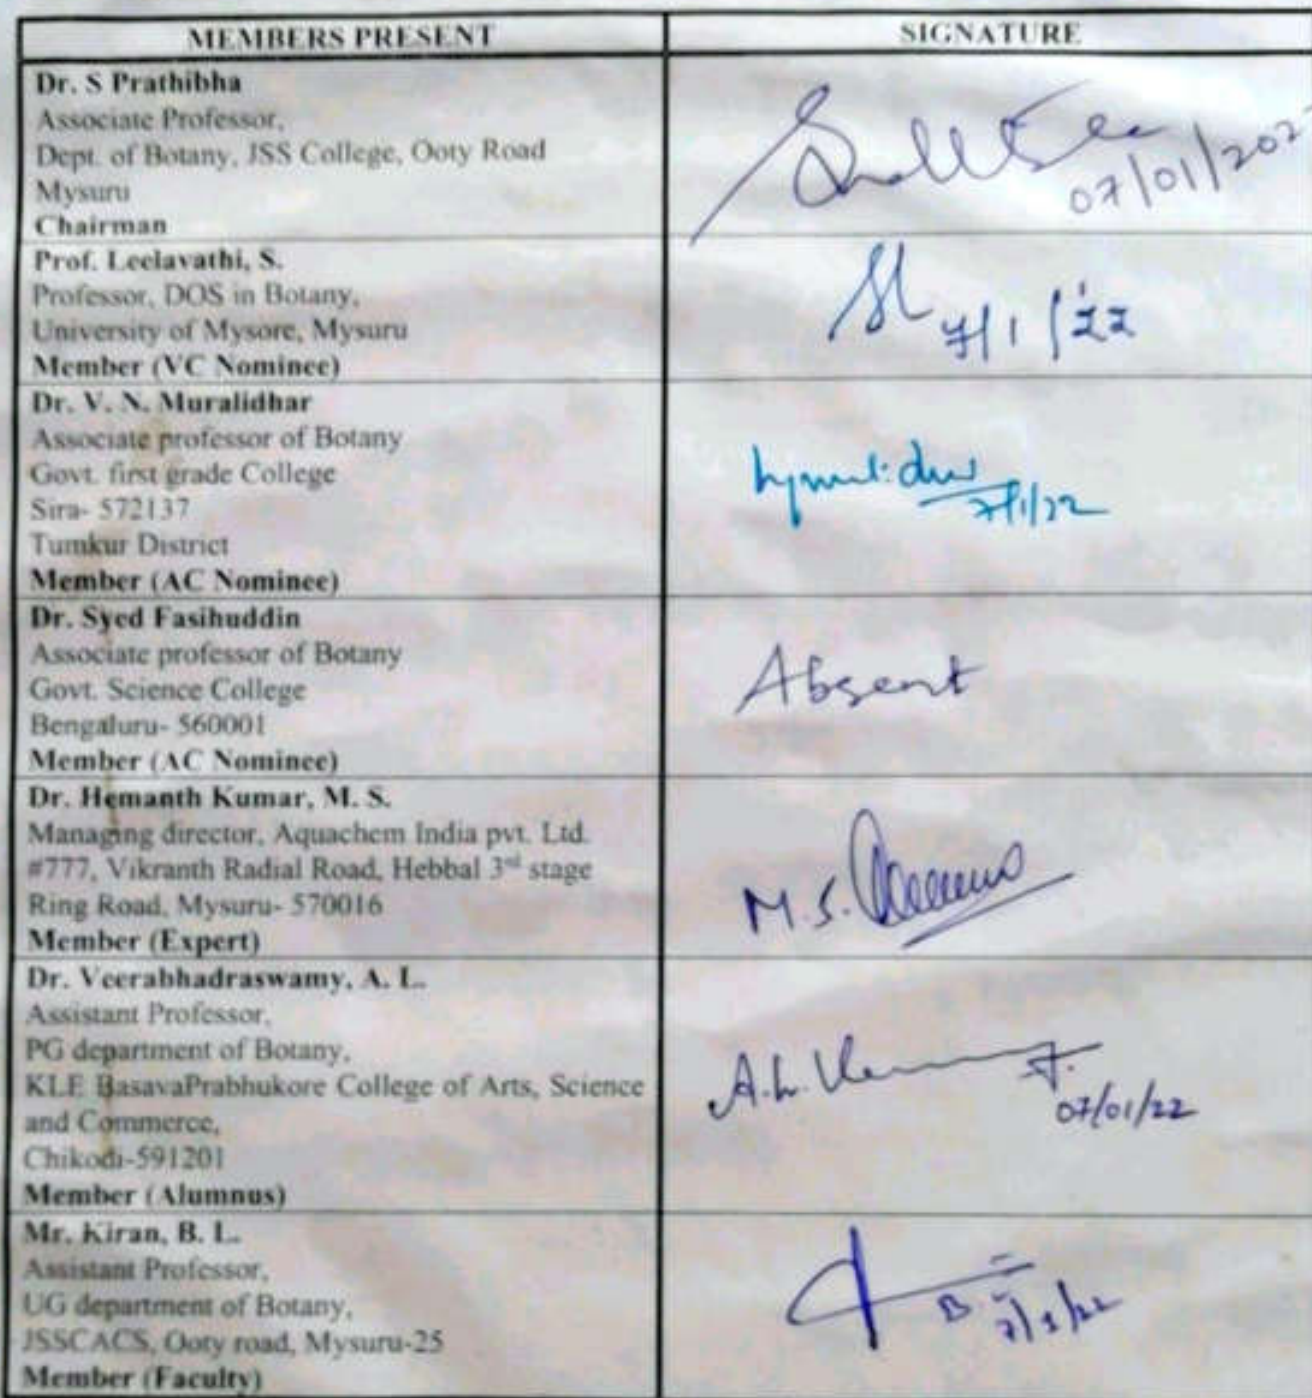 MEMBERS PRESENT
SIGNATURE
Dr. S Prathibha
Associate Professor,
Dept. of Botany, JSS College, Ooty Road
Mysuru
Chairman
07/01/202
Prof. Leelavathi, S.
Professor, DOS in Botany,
University of Mysore, Mysuru
Member (VC Nominee)
7/1/22
Dr. V. N. Muralidhar
Associate professor of Botany
Govt. first grade College
Sira- 572137
Tumkur District
Member (AC Nominee)
7/1/22
Dr. Syed Fasihuddin
Associate professor of Botany
Govt. Science College
Bengaluru- 560001
Member (AC Nominee)
Absent
Dr. Hemanth Kumar, M. S.
Managing director, Aquachem India pvt. Ltd.
#777, Vikranth Radial Road, Hebbal 3rd stage
Ring Road, Mysuru- 570016
Member (Expert)
M.S.
Dr. Veerabhadraswamy, A. L.
Assistant Professor,
PG department of Botany,
KLE BasavaPrabhukore College of Arts, Science
and Commerce,
Chikodi-591201
Member (Alumnus)
A.L.
07/01/22
Mr. Kiran, B. L.
Assistant Professor,
UG department of Botany,
JSSCACS, Ooty road, Mysuru-25
Member (Faculty)
7/1/22